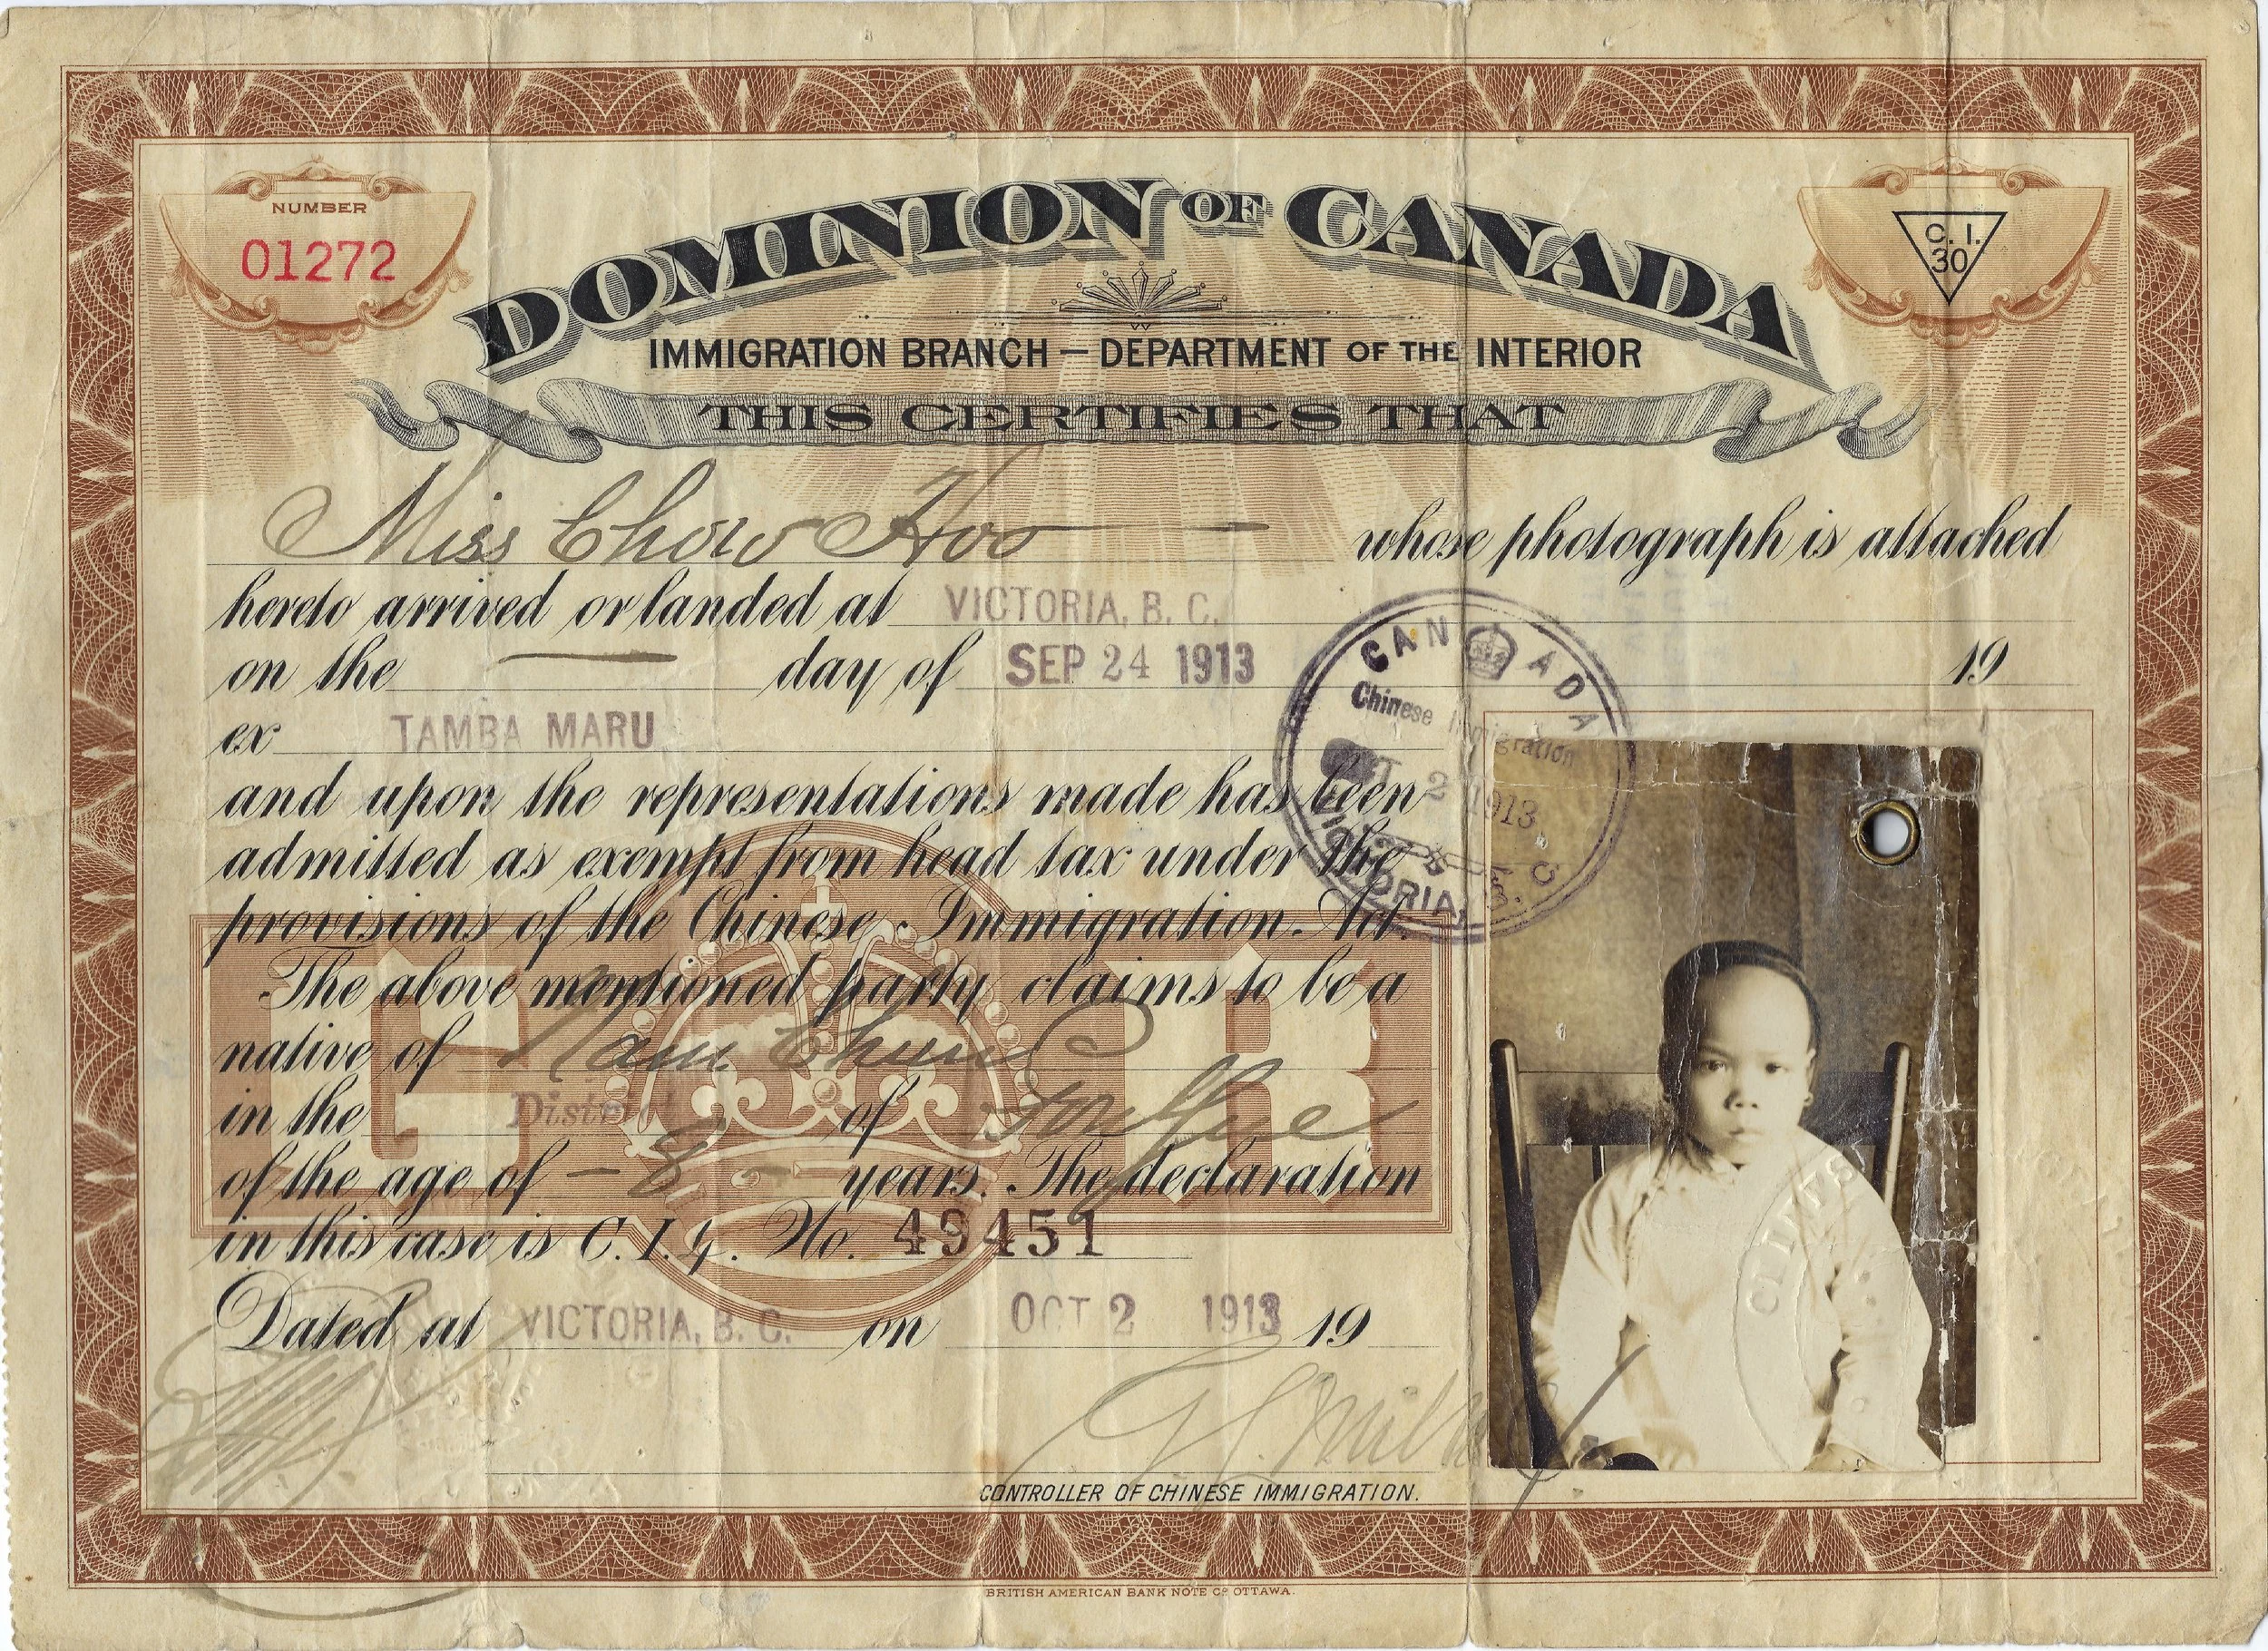 NUMBER
01272
C. I.
30
DOMINION OF CANADA
IMMIGRATION BRANCH — DEPARTMENT OF THE INTERIOR
THIS CERTIFIES THAT
Miss Chow Hoo whose photograph is attached
hereto arrived or landed at VICTORIA, B. C.
on the — day of SEP 24 1913 19
ex TAMBA MARU
and upon the representations made has been
admitted as exempt from head tax under the
provisions of the Chinese Immigration Act.
The above mentioned party claims to be a
native of Nam Chung
in the District of
of the age of - 8 - years. The declaration
in this case is C. I. 4. No. 49451
Dated at VICTORIA, B. C. on OCT 2 1913 19
CONTROLLER OF CHINESE IMMIGRATION.
CANADA
Chinese Immigration
OCT 2 1913
VICTORIA, B. C.
G R
BRITISH AMERICAN BANK NOTE CO OTTAWA.